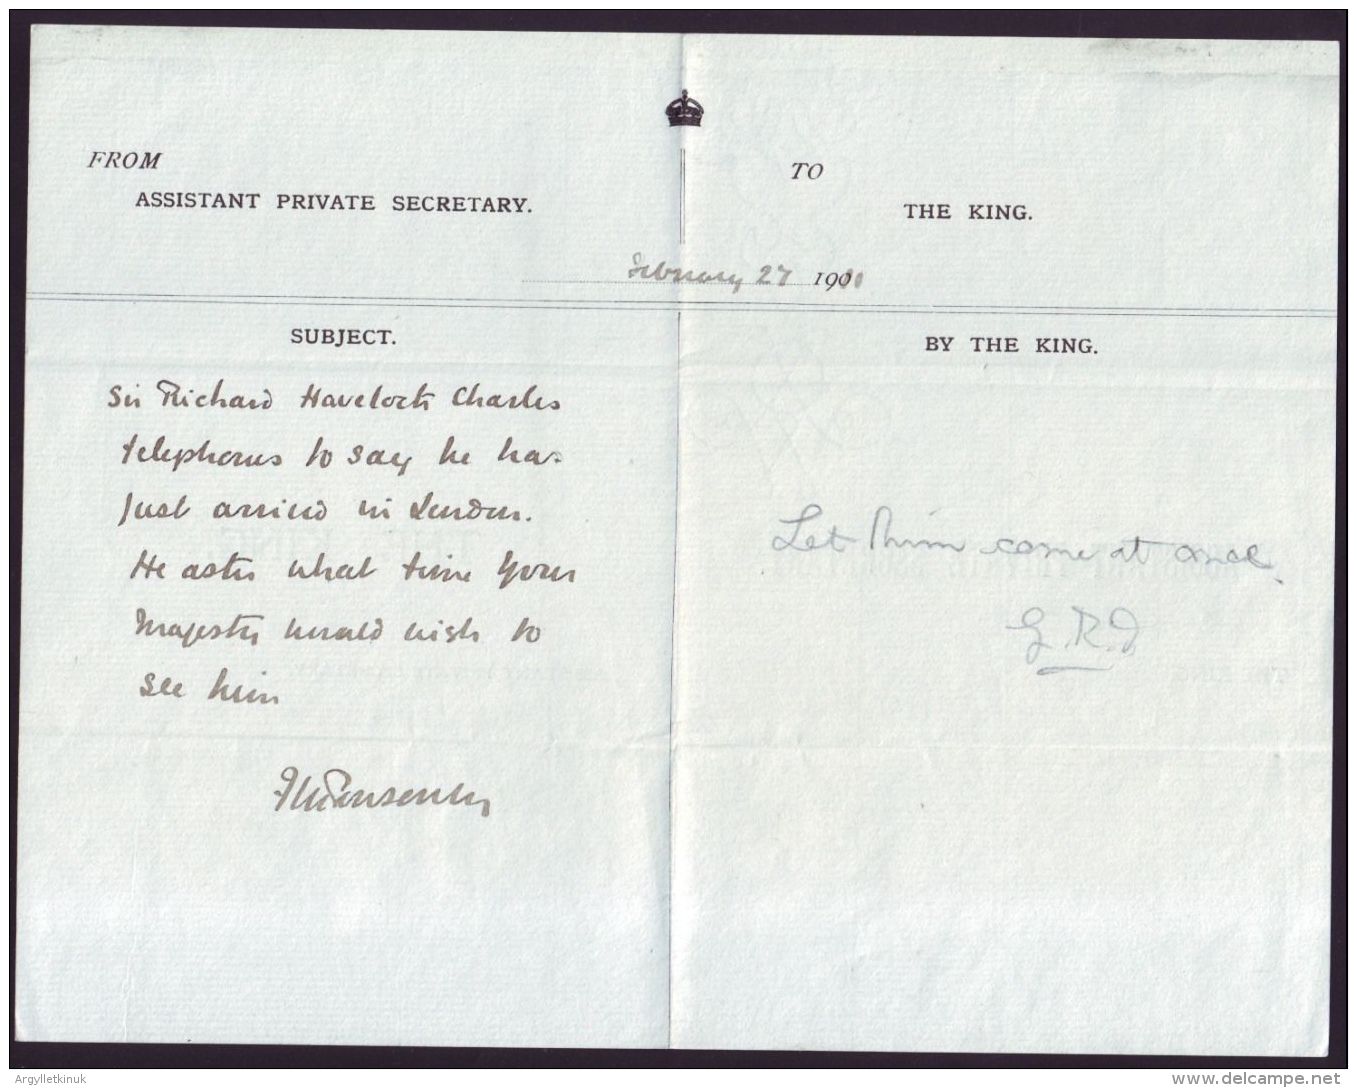 FROM
ASSISTANT PRIVATE SECRETARY.
TO
THE KING.
February 27 1911
SUBJECT.
BY THE KING.
Sir Richard Havelock Charles
telephones to say he has
just arrived in London.
He asks what time Your
Majesty would wish to
see him
FMPonsonby
Let him come at once.
G.R.I.
Argylletkinuk
delcampe.net